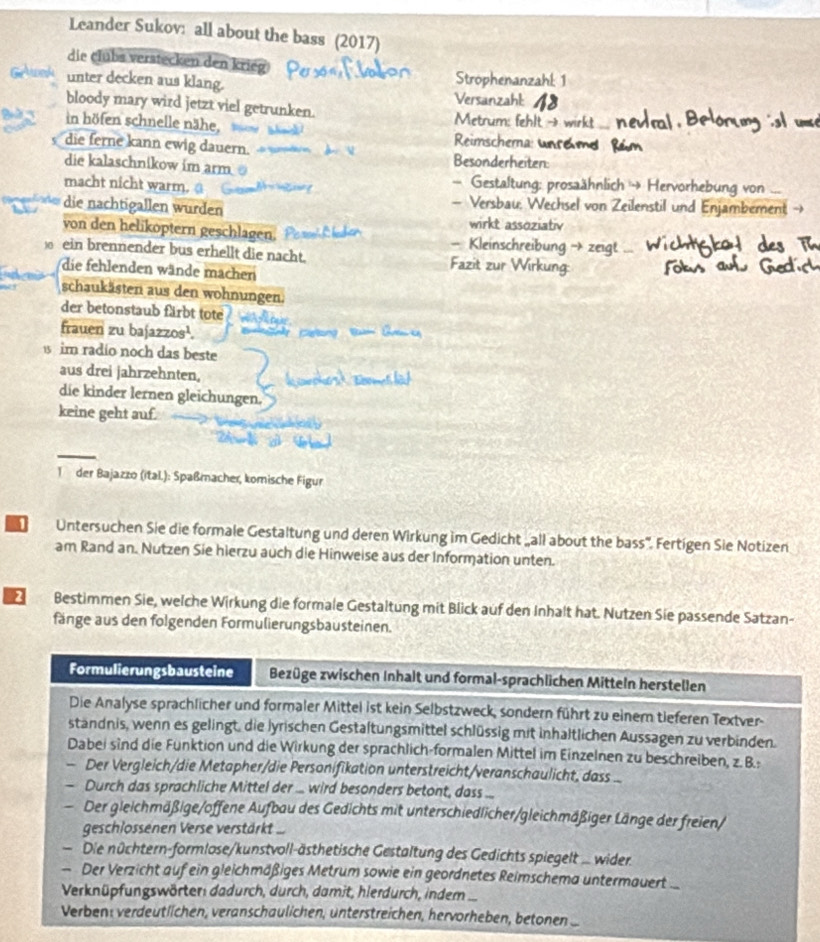 Leander Sukov: all about the bass (2017)
die clubs verstecken den krieg Personifikation
unter decken aus klang.
bloody mary wird jetzt viel getrunken.
in höfen schnelle nähe,
die ferne kann ewig dauern.
die kalaschnikow im arm
macht nicht warm.
die nachtigallen wurden
von den helikoptern geschlagen.
10 ein brennender bus erhellt die nacht.
die fehlenden wände machen
schaukästen aus den wohnungen.
der betonstaub färbt tote
frauen zu bajazzos¹.
15 im radio noch das beste
aus drei jahrzehnten,
die kinder lernen gleichungen,
keine geht auf.
Strophenanzahl: 1
Versanzahl: 18
Metrum: fehlt → wirkt ... neutral, Betonung ist
Reimschema: Reim
Besonderheiten:
– Gestaltung: prosaähnlich → Hervorhebung von ...
– Versbau: Wechsel von Zeilenstil und Enjambement →
wirkt assoziativ
– Kleinschreibung → zeigt ... Wichtigkeit des
Fazit zur Wirkung: Fokus auf Gedich
1 der Bajazzo (ital.): Spaßmacher, komische Figur
1 Untersuchen Sie die formale Gestaltung und deren Wirkung im Gedicht „all about the bass“. Fertigen Sie Notizen
am Rand an. Nutzen Sie hierzu auch die Hinweise aus der Information unten.
2 Bestimmen Sie, welche Wirkung die formale Gestaltung mit Blick auf den Inhalt hat. Nutzen Sie passende Satzan-
fänge aus den folgenden Formulierungsbausteinen.
Formulierungsbausteine Bezüge zwischen Inhalt und formal-sprachlichen Mitteln herstellen
Die Analyse sprachlicher und formaler Mittel ist kein Selbstzweck, sondern führt zu einem tieferen Textver-
ständnis, wenn es gelingt, die lyrischen Gestaltungsmittel schlüssig mit inhaltlichen Aussagen zu verbinden.
Dabei sind die Funktion und die Wirkung der sprachlich-formalen Mittel im Einzelnen zu beschreiben, z. B.:
– Der Vergleich/die Metapher/die Personifikation unterstreicht/veranschaulicht, dass ...
– Durch das sprachliche Mittel der ... wird besonders betont, dass ...
– Der gleichmäßige/offene Aufbau des Gedichts mit unterschiedlicher/gleichmäßiger Länge der freien/
geschlossenen Verse verstärkt ...
– Die nüchtern-formlose/kunstvoll-ästhetische Gestaltung des Gedichts spiegelt ... wider.
– Der Verzicht auf ein gleichmäßiges Metrum sowie ein geordnetes Reimschema untermauert ...
Verknüpfungswörter: dadurch, durch, damit, hierdurch, indem ...
Verben: verdeutlichen, veranschaulichen, unterstreichen, hervorheben, betonen ...